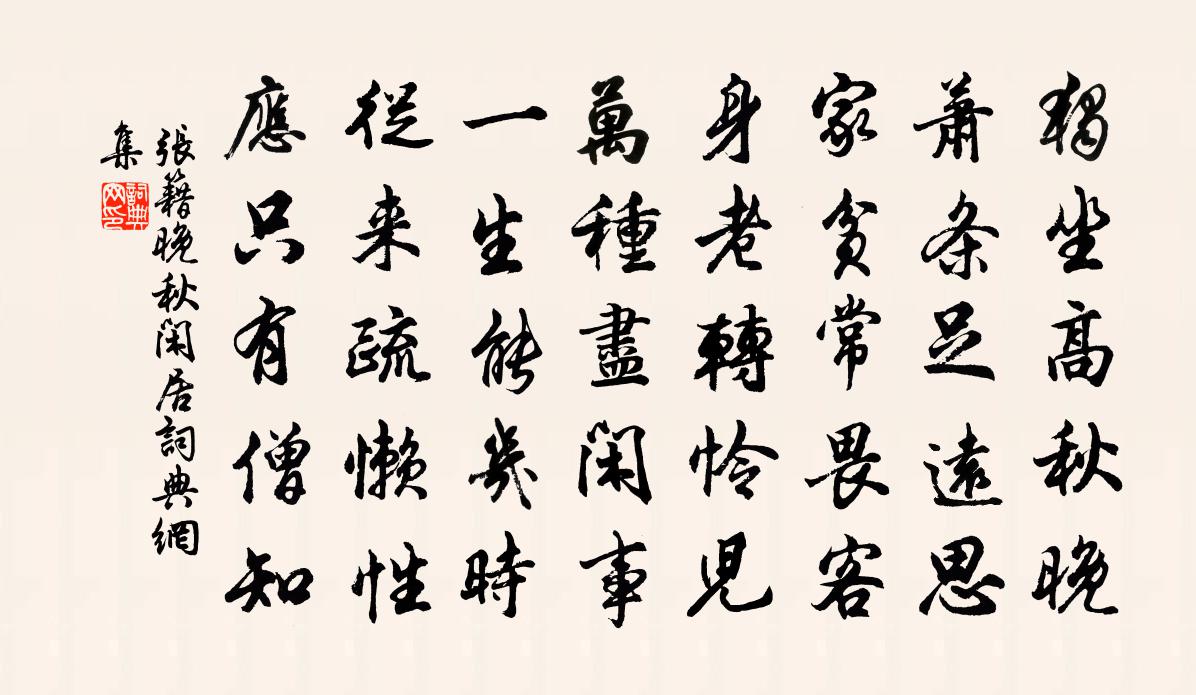 獨坐高秋晚
蕭条足遠思
家貧常畏客
身老轉怜児
萬種盡閑事
一生能幾時
從来疏懶性
應只有僧知
張籍晚秋閑居詞典網
集
詞典
网印